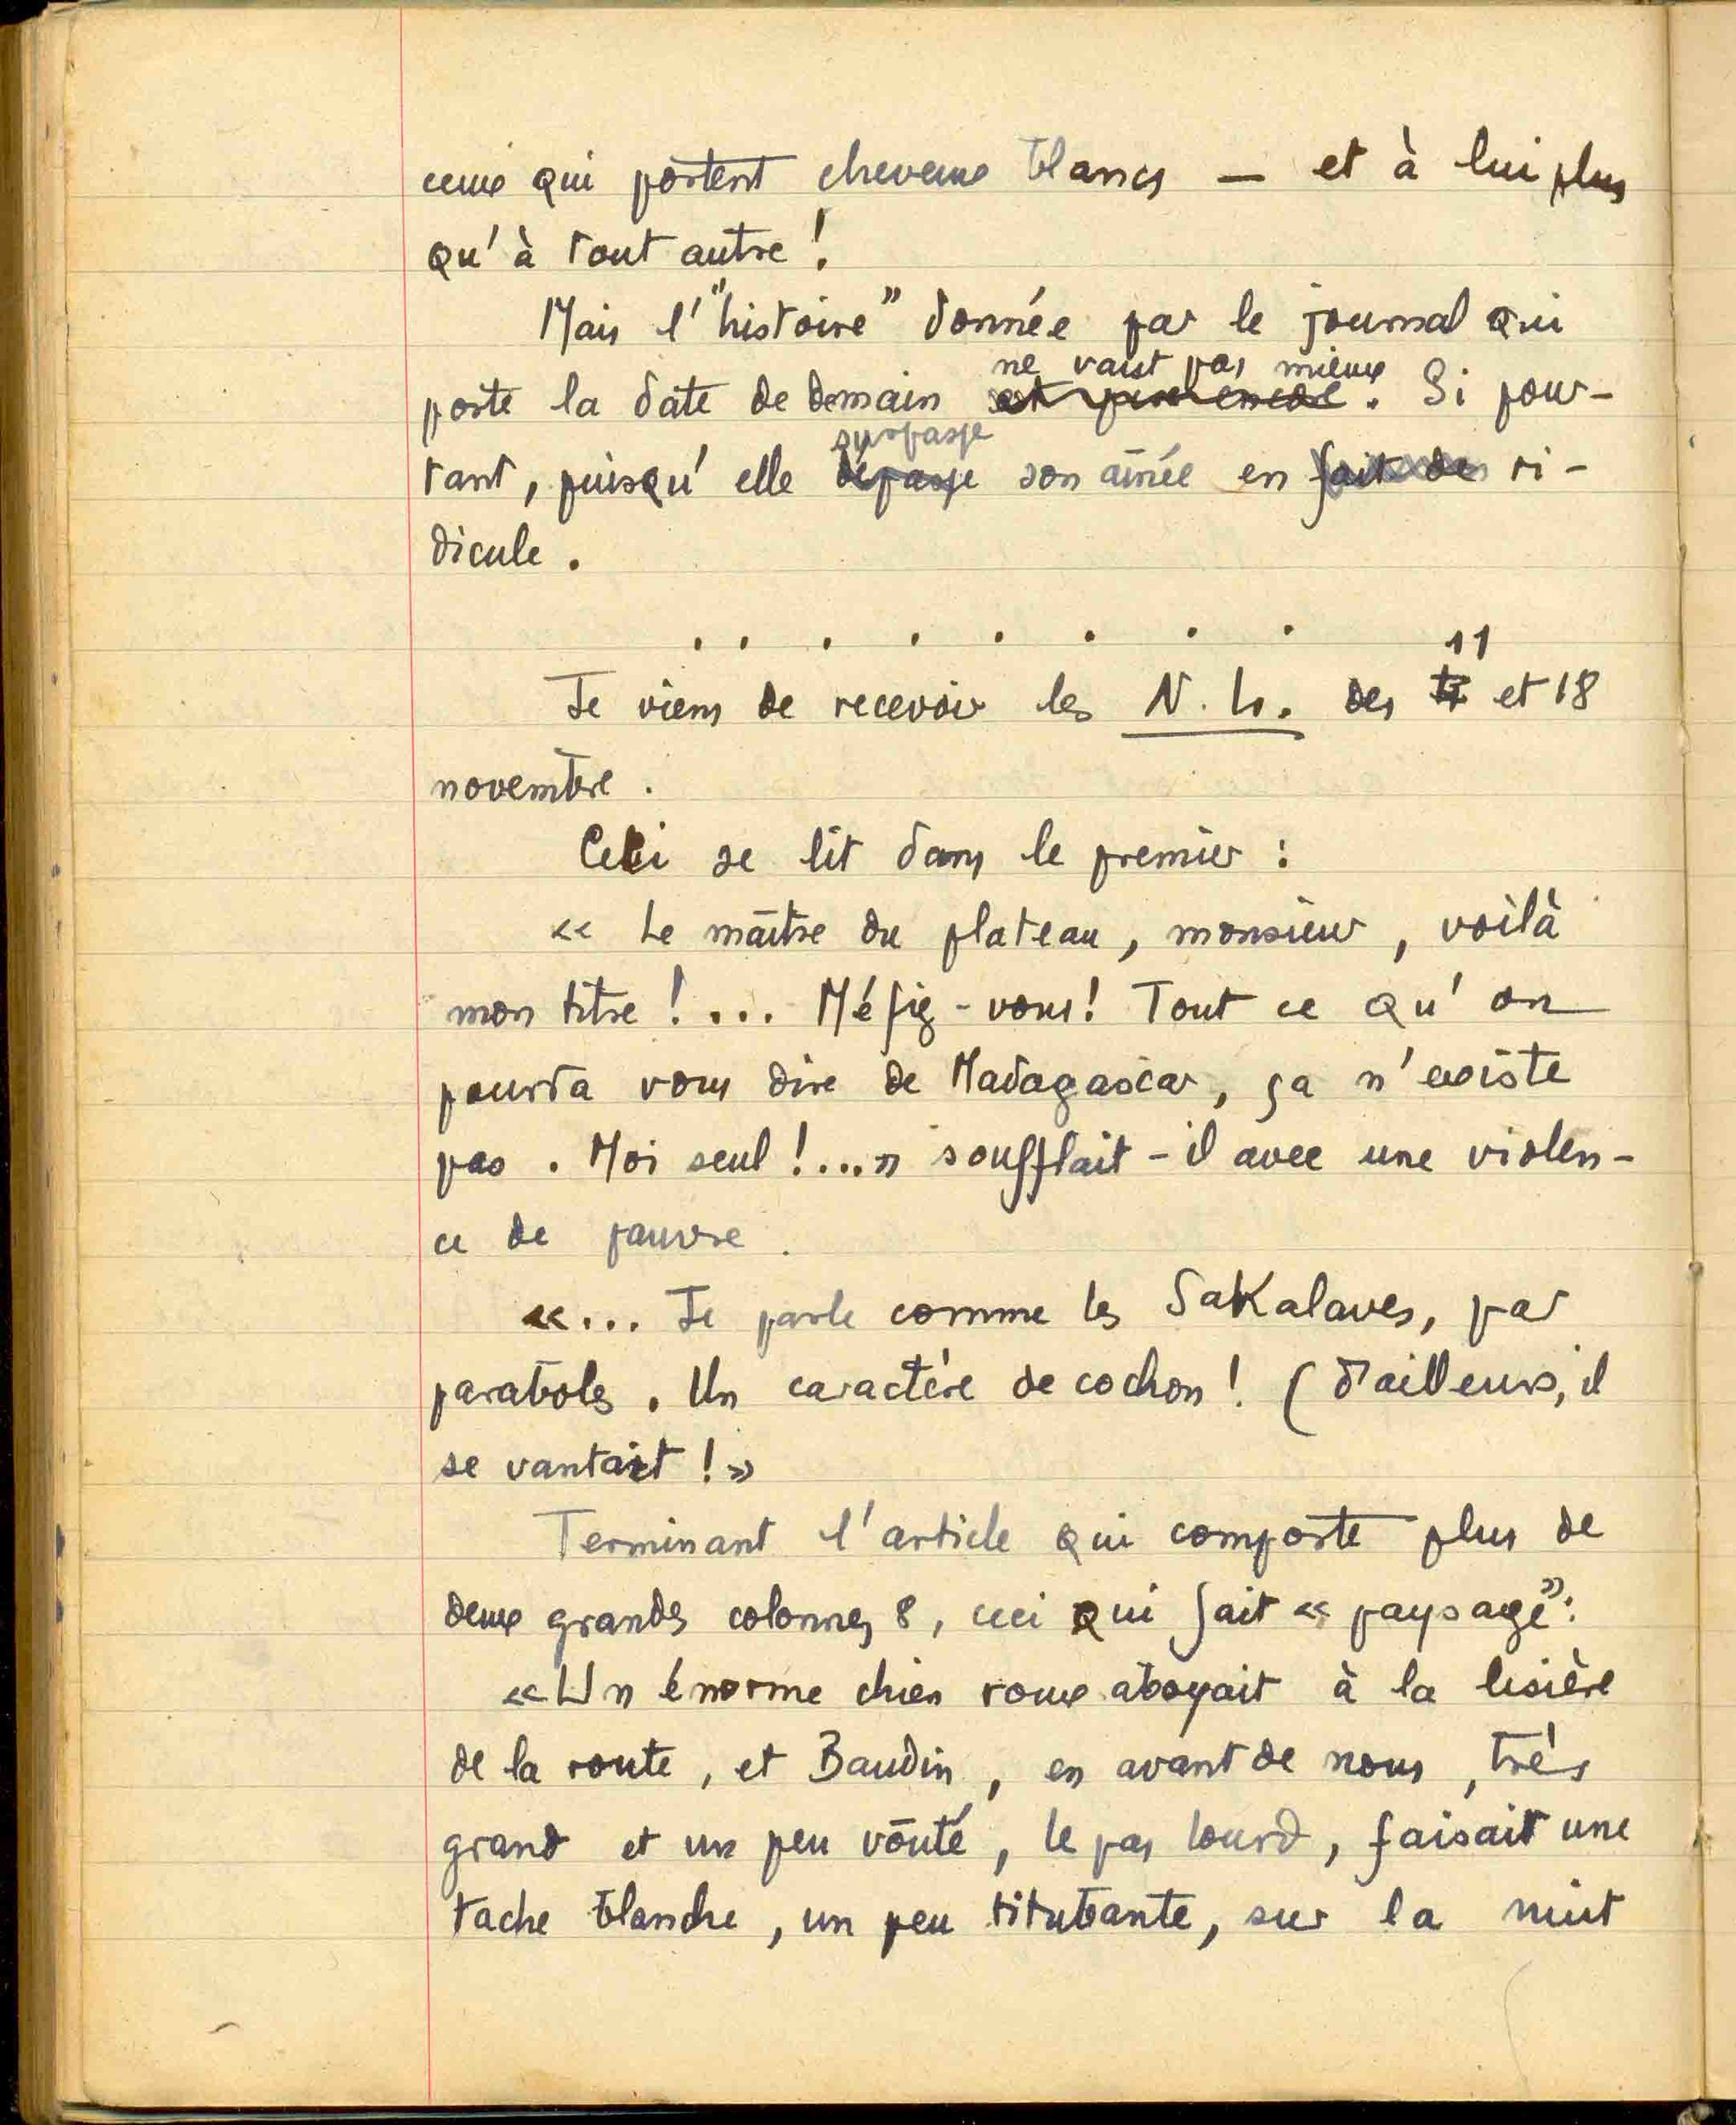 ceux qui portent cheveux blancs — et à lui plus
qu'à tout autre !
Mais l'"histoire" donnée par le journal qui
ne vaut pas mieux
porte la date de demain est pire encore. Si pour-
surpasse
tant, puisqu'elle dépasse son aînée en fait de ri-
dicule.
. . . . . . . .
11
Je viens de recevoir les N. L. des et 18
novembre.
Ceci se lit dans le premier :
« Le maître du plateau, monsieur, voilà
mon titre !... Méfiez-vous ! Tout ce qu'on
pourra vous dire de Madagascar, ça n'existe
pas. Moi seul !...» soufflait-il avec une violen-
ce de pauvre.
«... Je parle comme les Sakalaves, par
paraboles. Un caractère de cochon ! (D'ailleurs, il
se vantait !»
Terminant l'article qui comporte plus de
deux grandes colonnes 8, ceci qui fait « paysage" :
« Un énorme chien roux aboyait à la lisière
de la route, et Baudin, en avant de nous, très
grand et un peu voûté, le pas lourd, faisait une
tache blanche, un peu titubante, sur la nuit